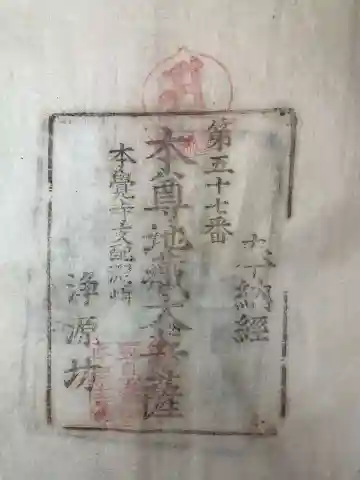 奉納經
第五十七番
本尊地藏大菩薩
本覺寺支配源崎
浄源坊